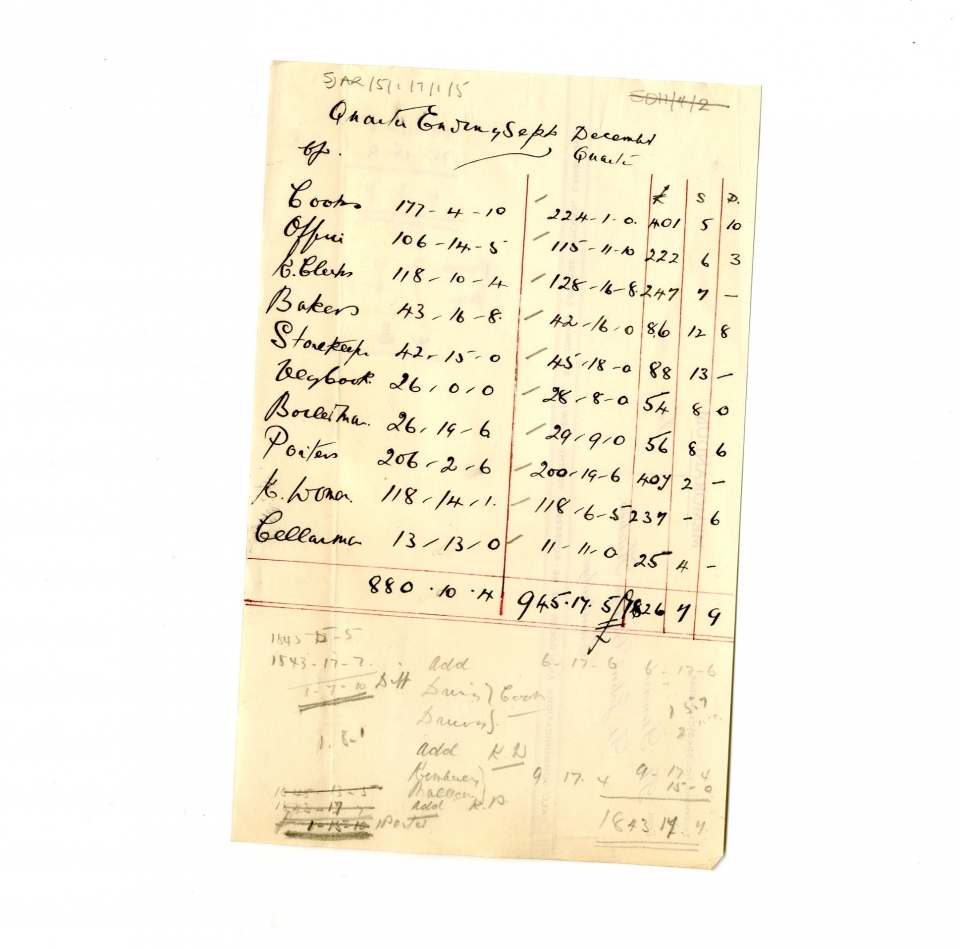 SJAR/5/1/17/1/5 SDH/4/2
Quarter Ending Sept December
Quarter
£ S D.
Cooks 177-4-10 224-1-0. 401 5 10
Office 106-14-5 115-11-10 222 6 3
K. Clerks 118-10-4 128-16-8. 247 7 -
Bakers 43-16-8. 42-16-0 86 12 8
Storekeepr 42-15-0 45-18-0 88 13 -
26-0-0 28-8-0 54 8 0
Boilerman 26-19-6 29-9-0 56 8 6
Porters 206-2-6 200-19-6 407 2 -
K. Woman 118-14-1. 118-6-5 237 - 6
Cellarman 13-13-0 11-11-0 25 4 -
880.10.4 945.17.5 1826 7 9
1843-15-5
1843-17-7. add 6-17-6 6-17-6
1-7-10 Diff Cook
1.8-1
add K.W
9 17. 4 9-17-4
15-0
1843-17 add K.P.
1-15-10 1 Porter 1843 17 7